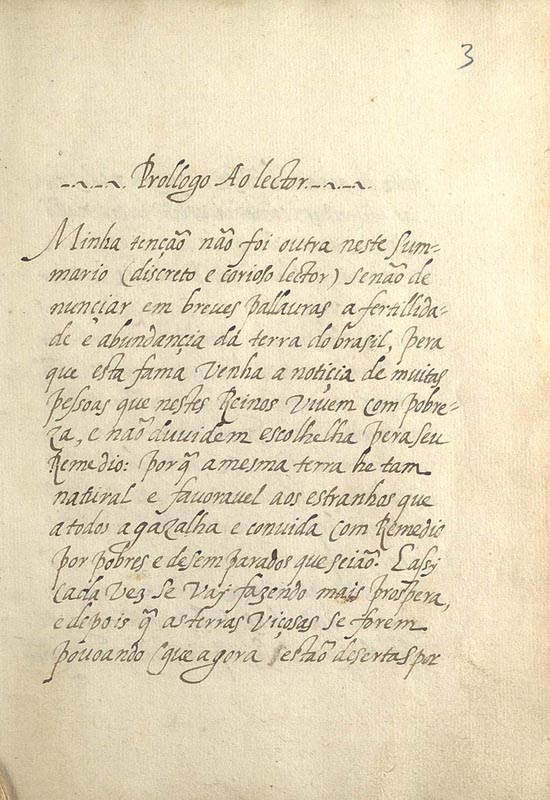 3
Prollogo Ao lector
Minha tenção não foi outra neste sum-
mario (discreto e corioso lector) senão de
nunçiar em breves pallauras a fertillida-
de e abundançia da terra do brasil, pera
que esta fama venha a notiçia de muitas
pessoas que nestes Reinos vivem com pobre-
za, e não duvidem escolhella pera seu
Remedio: porq̃ a mesma terra he tam
natural e favoravel aos estranhos que
a todos agazalha e convida com Remedio
por pobres e desemparados que seião. E assj
cada vez se vaj fazendo mais prospera,
e depois q̃ as terras viçosas se forem
povoando (que agora estão desertas por